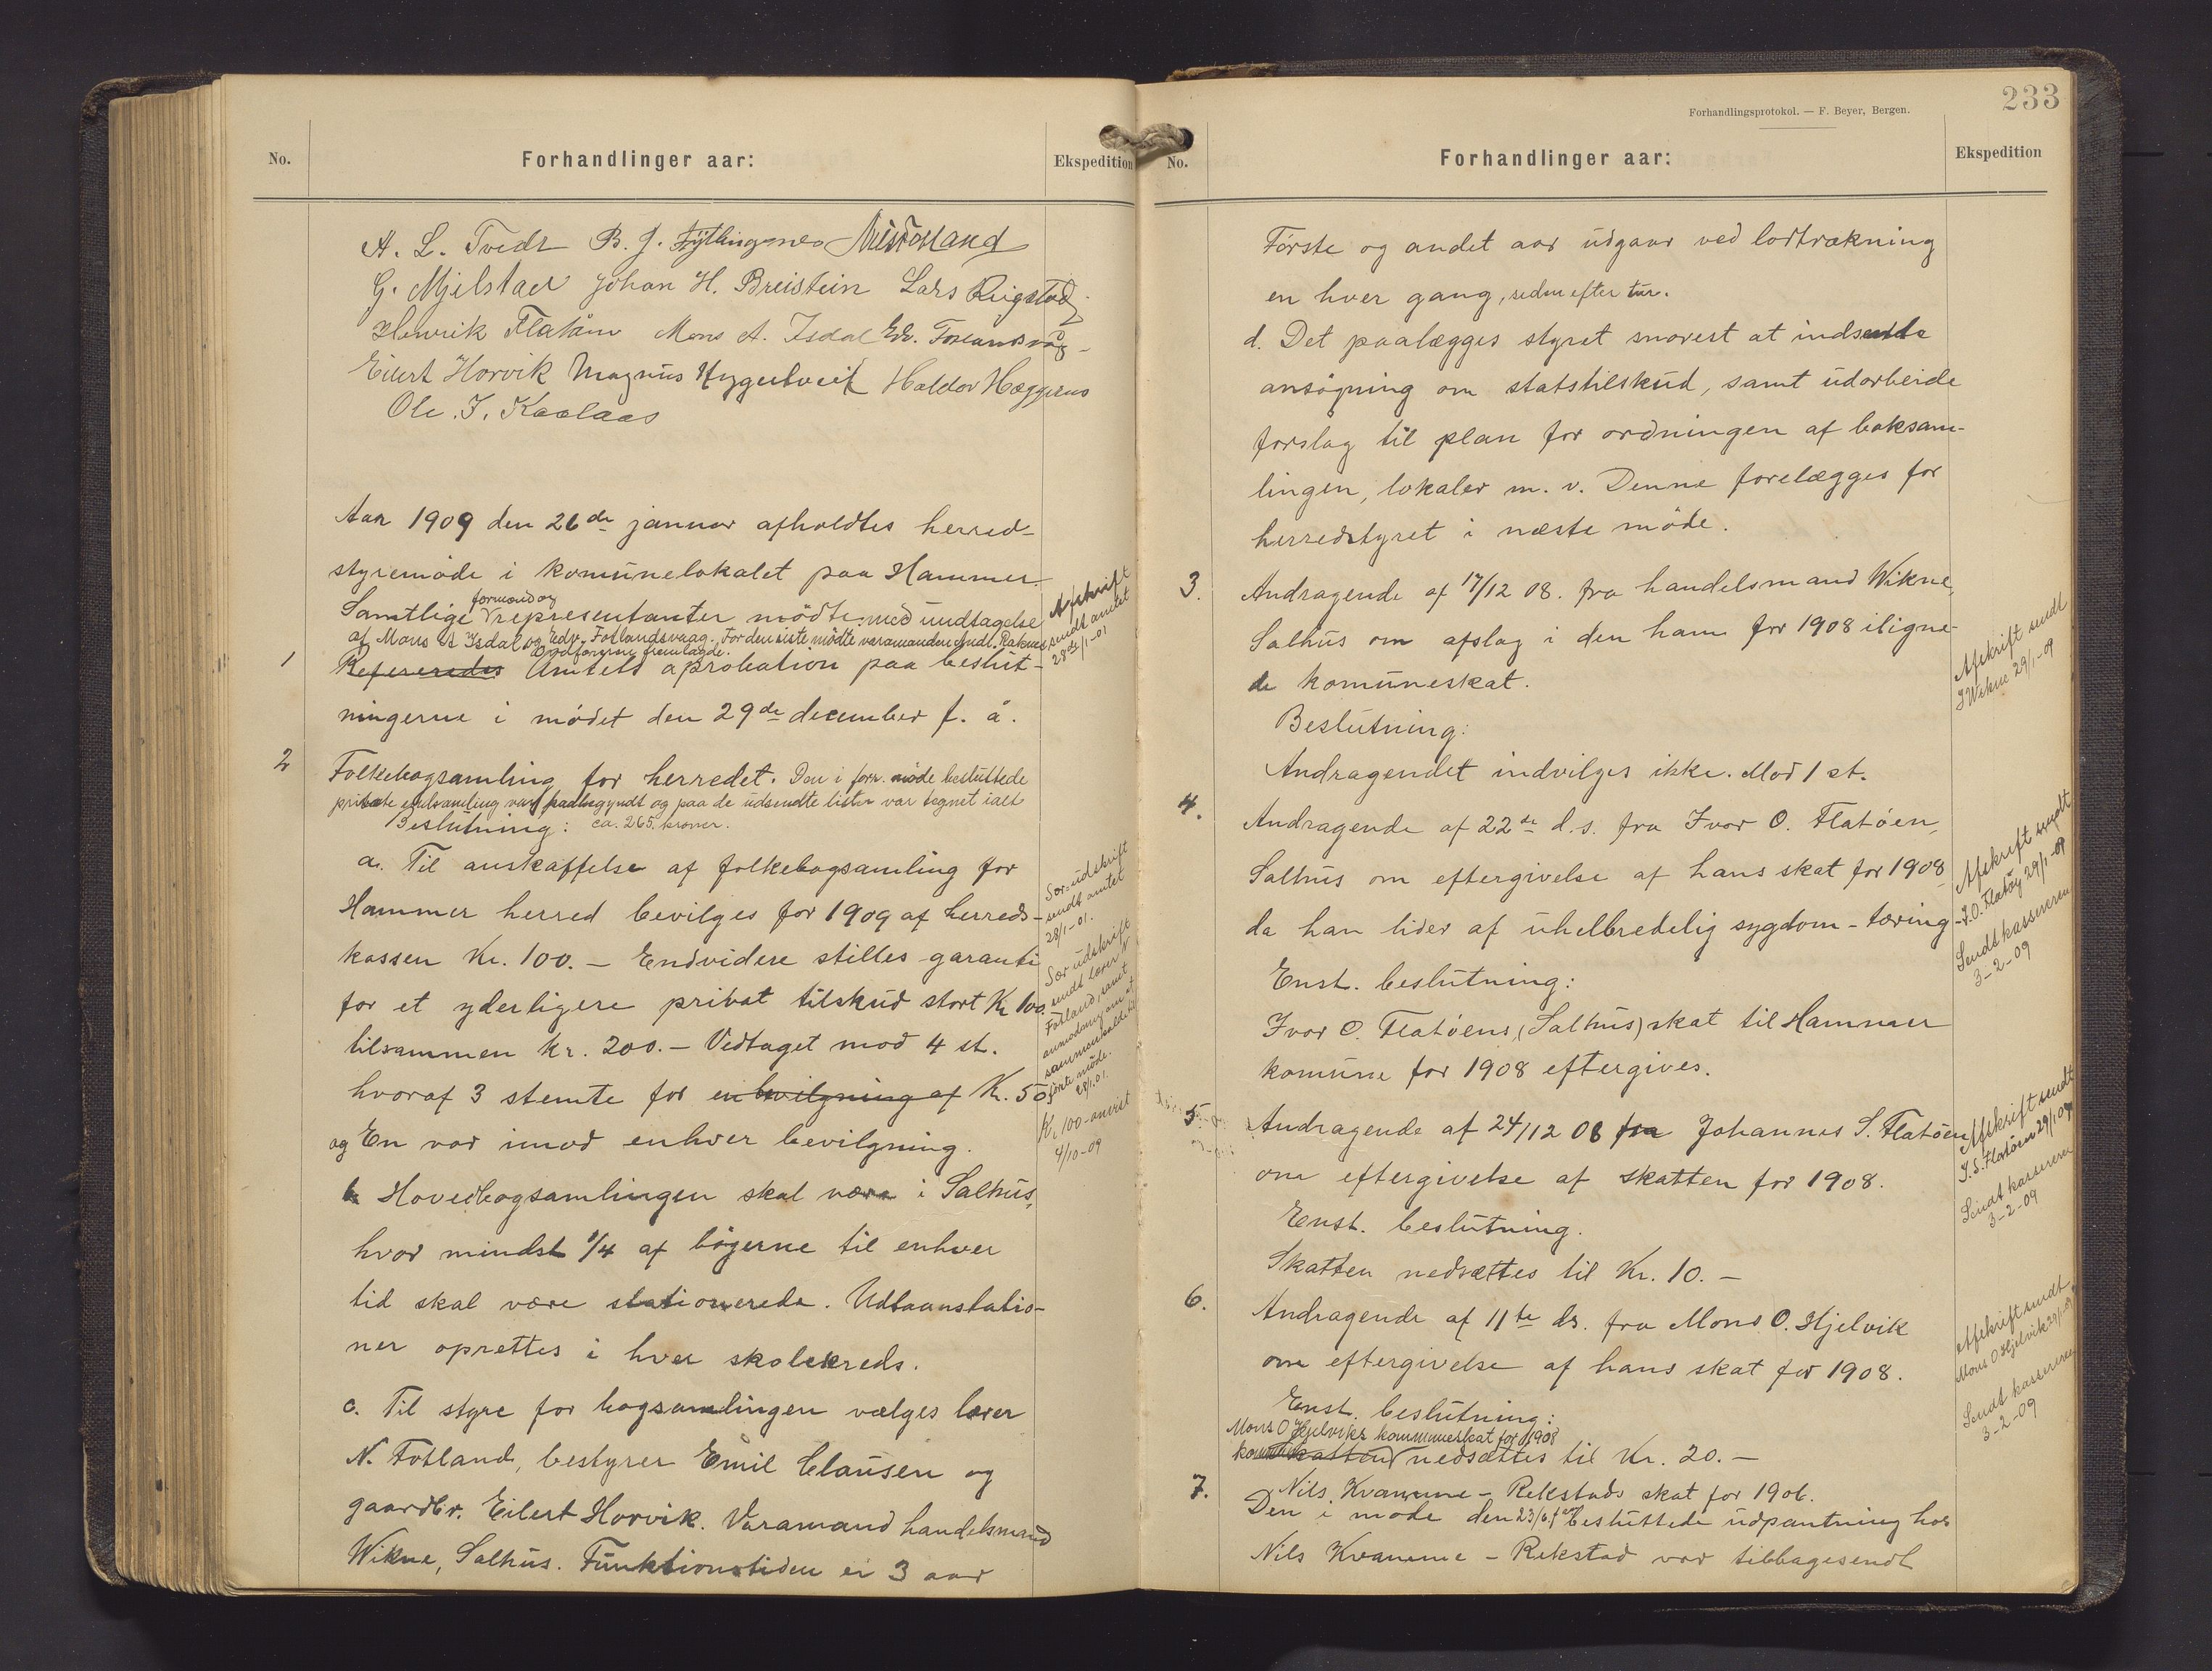 No.
Forhandlinger aar:
Ekspedition
A. L. Tvedt B. J. Fÿtlingsnes Nils Fotland
G. Mjelstad Johan H. Breistein Lars Reigstad
Henrik Flatøen Mons A. Isdal Edv. Fotlandsvåg
Eilert Horvik Magnus Hyggertveit Haldor Hæggernes
Ole. J. Kaalaas
Aar 1909 den 26de januar afholdtes herred-
styremøde i komunelokalet paa Hammer.
formænd og
Samtlige repræsentanter mødte med undtagelse
af Mons A Isdal og Edv. Fotlandsvaag. For den siste mødte varamanden Andr. Raknes
Ordføreren fremlagde.
1 Refereredes Amtets aprobation paa beslut-
ningerne i mødet den 29de december f. å.
Afskrift
sendt amtet
28de/1-01
2 Folkebogsamling for herredet. Den i forr. møde besluttede
private indsamling var paabegyndt og paa de udsendte lister var tegnet ialt
Beslutning: ca. 265 kroner.
a. Til anskaffelse af folkebogsamling for
Hammer herred bevilges for 1909 af herreds-
kassen Kr. 100.— Endvidere stilles garanti
for et yderligere privat tilskud stort Kr 100.
tilsammen kr. 200.— Vedtaget mod 4 st.
hvoraf 3 stemte for en bevilgning af Kr. 50,
og En var imod enhver bevilgning.
b Hovedbogsamlingen skal være i Salhus,
hvor mindst 1/4 af bøgerne til enhver
tid skal være stationerede. Udlaanstatio-
ner oprettes i hver skolekreds.
c. Til styre for bogsamlingen vælges lærer
N. Fotland, bestyrer Emil Clausen og
gaardbr. Eilert Horvik. Varamand handelsmand
Wikne, Salhus. Funktionstiden er 3 aar
Sær-udskrift
sendt amtet
28/1-01.
Sær udskrift
sendt lærer N.
Fotland, samt
anmodning om at
sammenkalde til
første møde.
28/1.01.
Kr 100-anvist
4/10-09
233
Forhandlingsprotokol. — F. Beyer, Bergen.
No.
Forhandlinger aar:
Ekspedition
Første og andet aar udgaar ved lodtrækning
en hver gang, siden efter tur.
d. Det paalægges styret snarest at indsende
ansøgning om statstilskud, samt udarbeide
forslag til plan for ordningen af boksam-
lingen, lokaler m. v. Denne forelægges for
herredstyret i næste møde.
3. Andragende af 17/12 08. fra handelsmand Wikne,
Salhus om afslag i den ham for 1908 iligne-
de komuneskat.
Beslutning:
Andragendet indvilges ikke. Mod 1 st.
Afskrift sendt
J Wikne 29/1-09
4. Andragende af 22de d.s. fra Ivar O. Flatøen,
Salhus om eftergivelse af hans skat for 1908,
da han lider af uhelbredelig sygdom - tæring -
Enst. beslutning:
Ivar O. Flatøens, (Salhus) skat til Hammer
komune for 1908 eftergives.
Afskrift sendt
I. O. Flatøy 29/1-09
Sendt kassereren
3-2-09
5 Andragende af 24/12 08 fra Johannes S. Flatøen
om eftergivelse af skatten for 1908.
Enst. beslutning.
Skatten nedsættes til Kr. 10.—
Afskrift sendt
J. S. Flatøen 29/1 09
Sendt kassereren
3-2-09
6. Andragende af 11te ds. fra Mons O. Hjelvik
om eftergivelse af hans skat for 1908.
Enst. beslutning:
Mons O Hjelviks kommuneskat for 1908
Skatten nedsættes til Kr. 20.—
Afskrift sendt
Mons O Hjelvik 29/1-09
Sendt kassereren
3-2-09
7. Nils Kvamme - Rekstads skat for 1906.
Den i møde den 23/6 f besluttede udpantning hos
Nils Kvamme - Rekstad var tilbagesendt